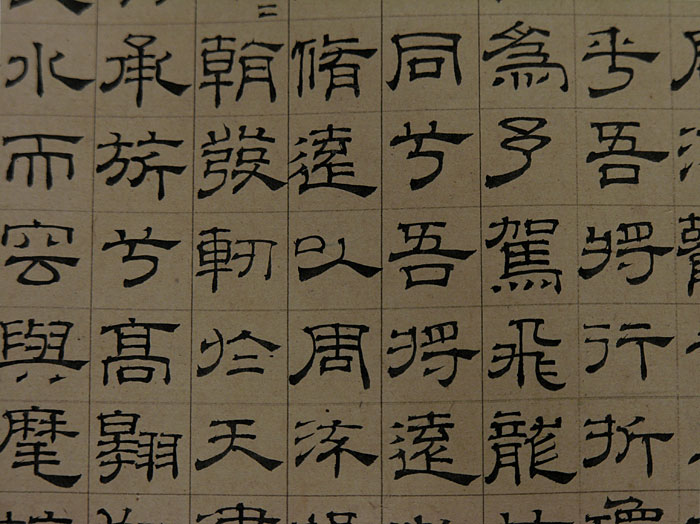 乎吾將行折瓊
為予駕飛龍
同兮吾將遠
脩遠以周流揚
朝發軔於天津
承旂兮高翱
水而容與麾